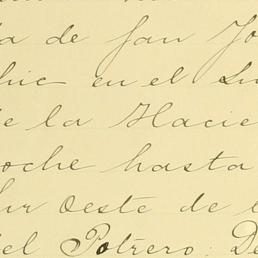 a de San Jo
hic en el Su
e la Hacie
oche hasta
ur Oeste de l
el Potrero. De